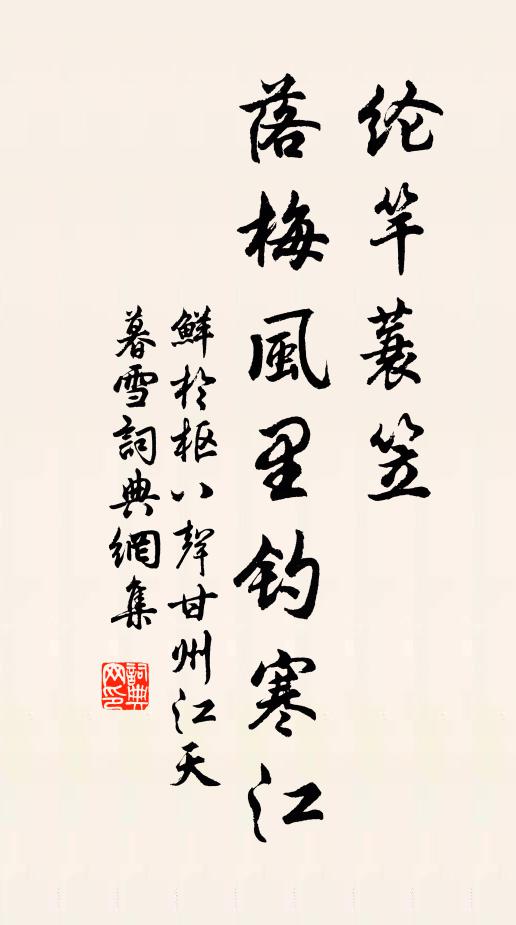 纶竿蓑笠
落梅風里钓寒江
鮮于枢八聲甘州江天
暮雪詞典網集
詞典网印